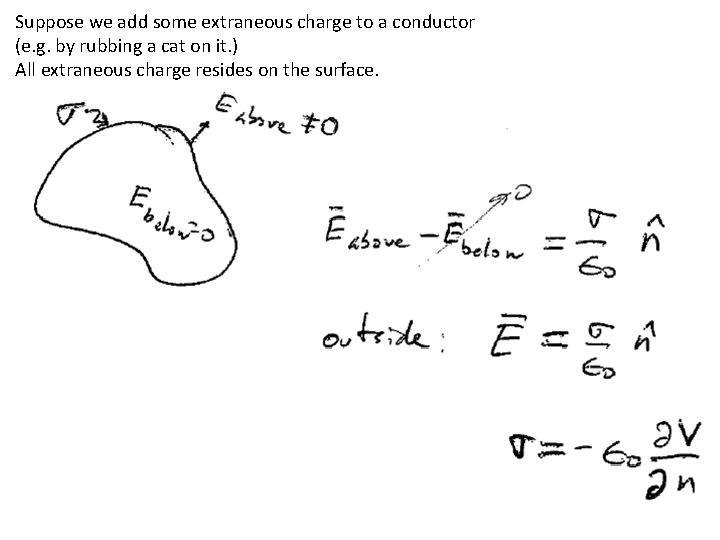 Suppose we add some extraneous charge to a conductor
(e.g. by rubbing a cat on it.)
All extraneous charge resides on the surface.
σ
E above ≠ 0
E below = 0
Ē above - Ē below → 0 = σ/ε₀ n̂
outside: Ē = σ/ε₀ n̂
σ = - ε₀ ∂V/∂n